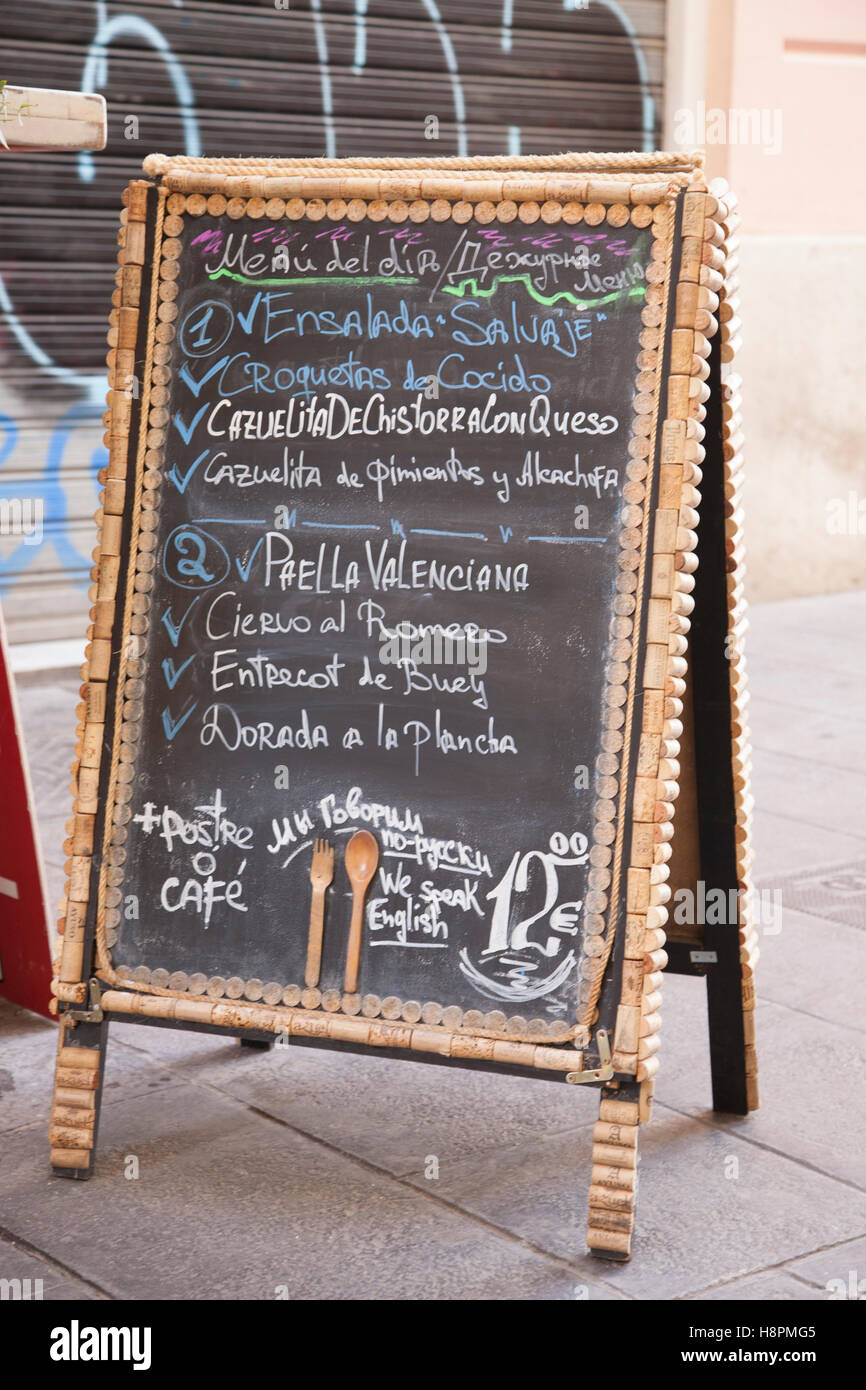 Menú del día / Дежурное
меню
1 Ensalada "Salvaje"
Croquetas de Cocido
CAZUELITA DE CHISTORRA CON QUESO
CAZUELITA de Pimientos y Alcachofa
2 PAELLA VALENCIANA
Ciervo al Romero
Entrecot de Buey
Dorada a la plancha
+ Postre
o
CAFÉ
Мы говорим
по-русски
We speak
English
12 00 €
alamy
Image ID: H8PMG5
www.alamy.com